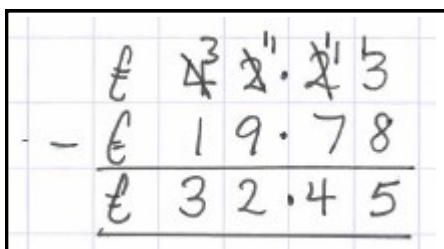 £ 4 3 2 11 . 2 11 1 3
- £ 1 9 . 7 8
£ 3 2 . 4 5